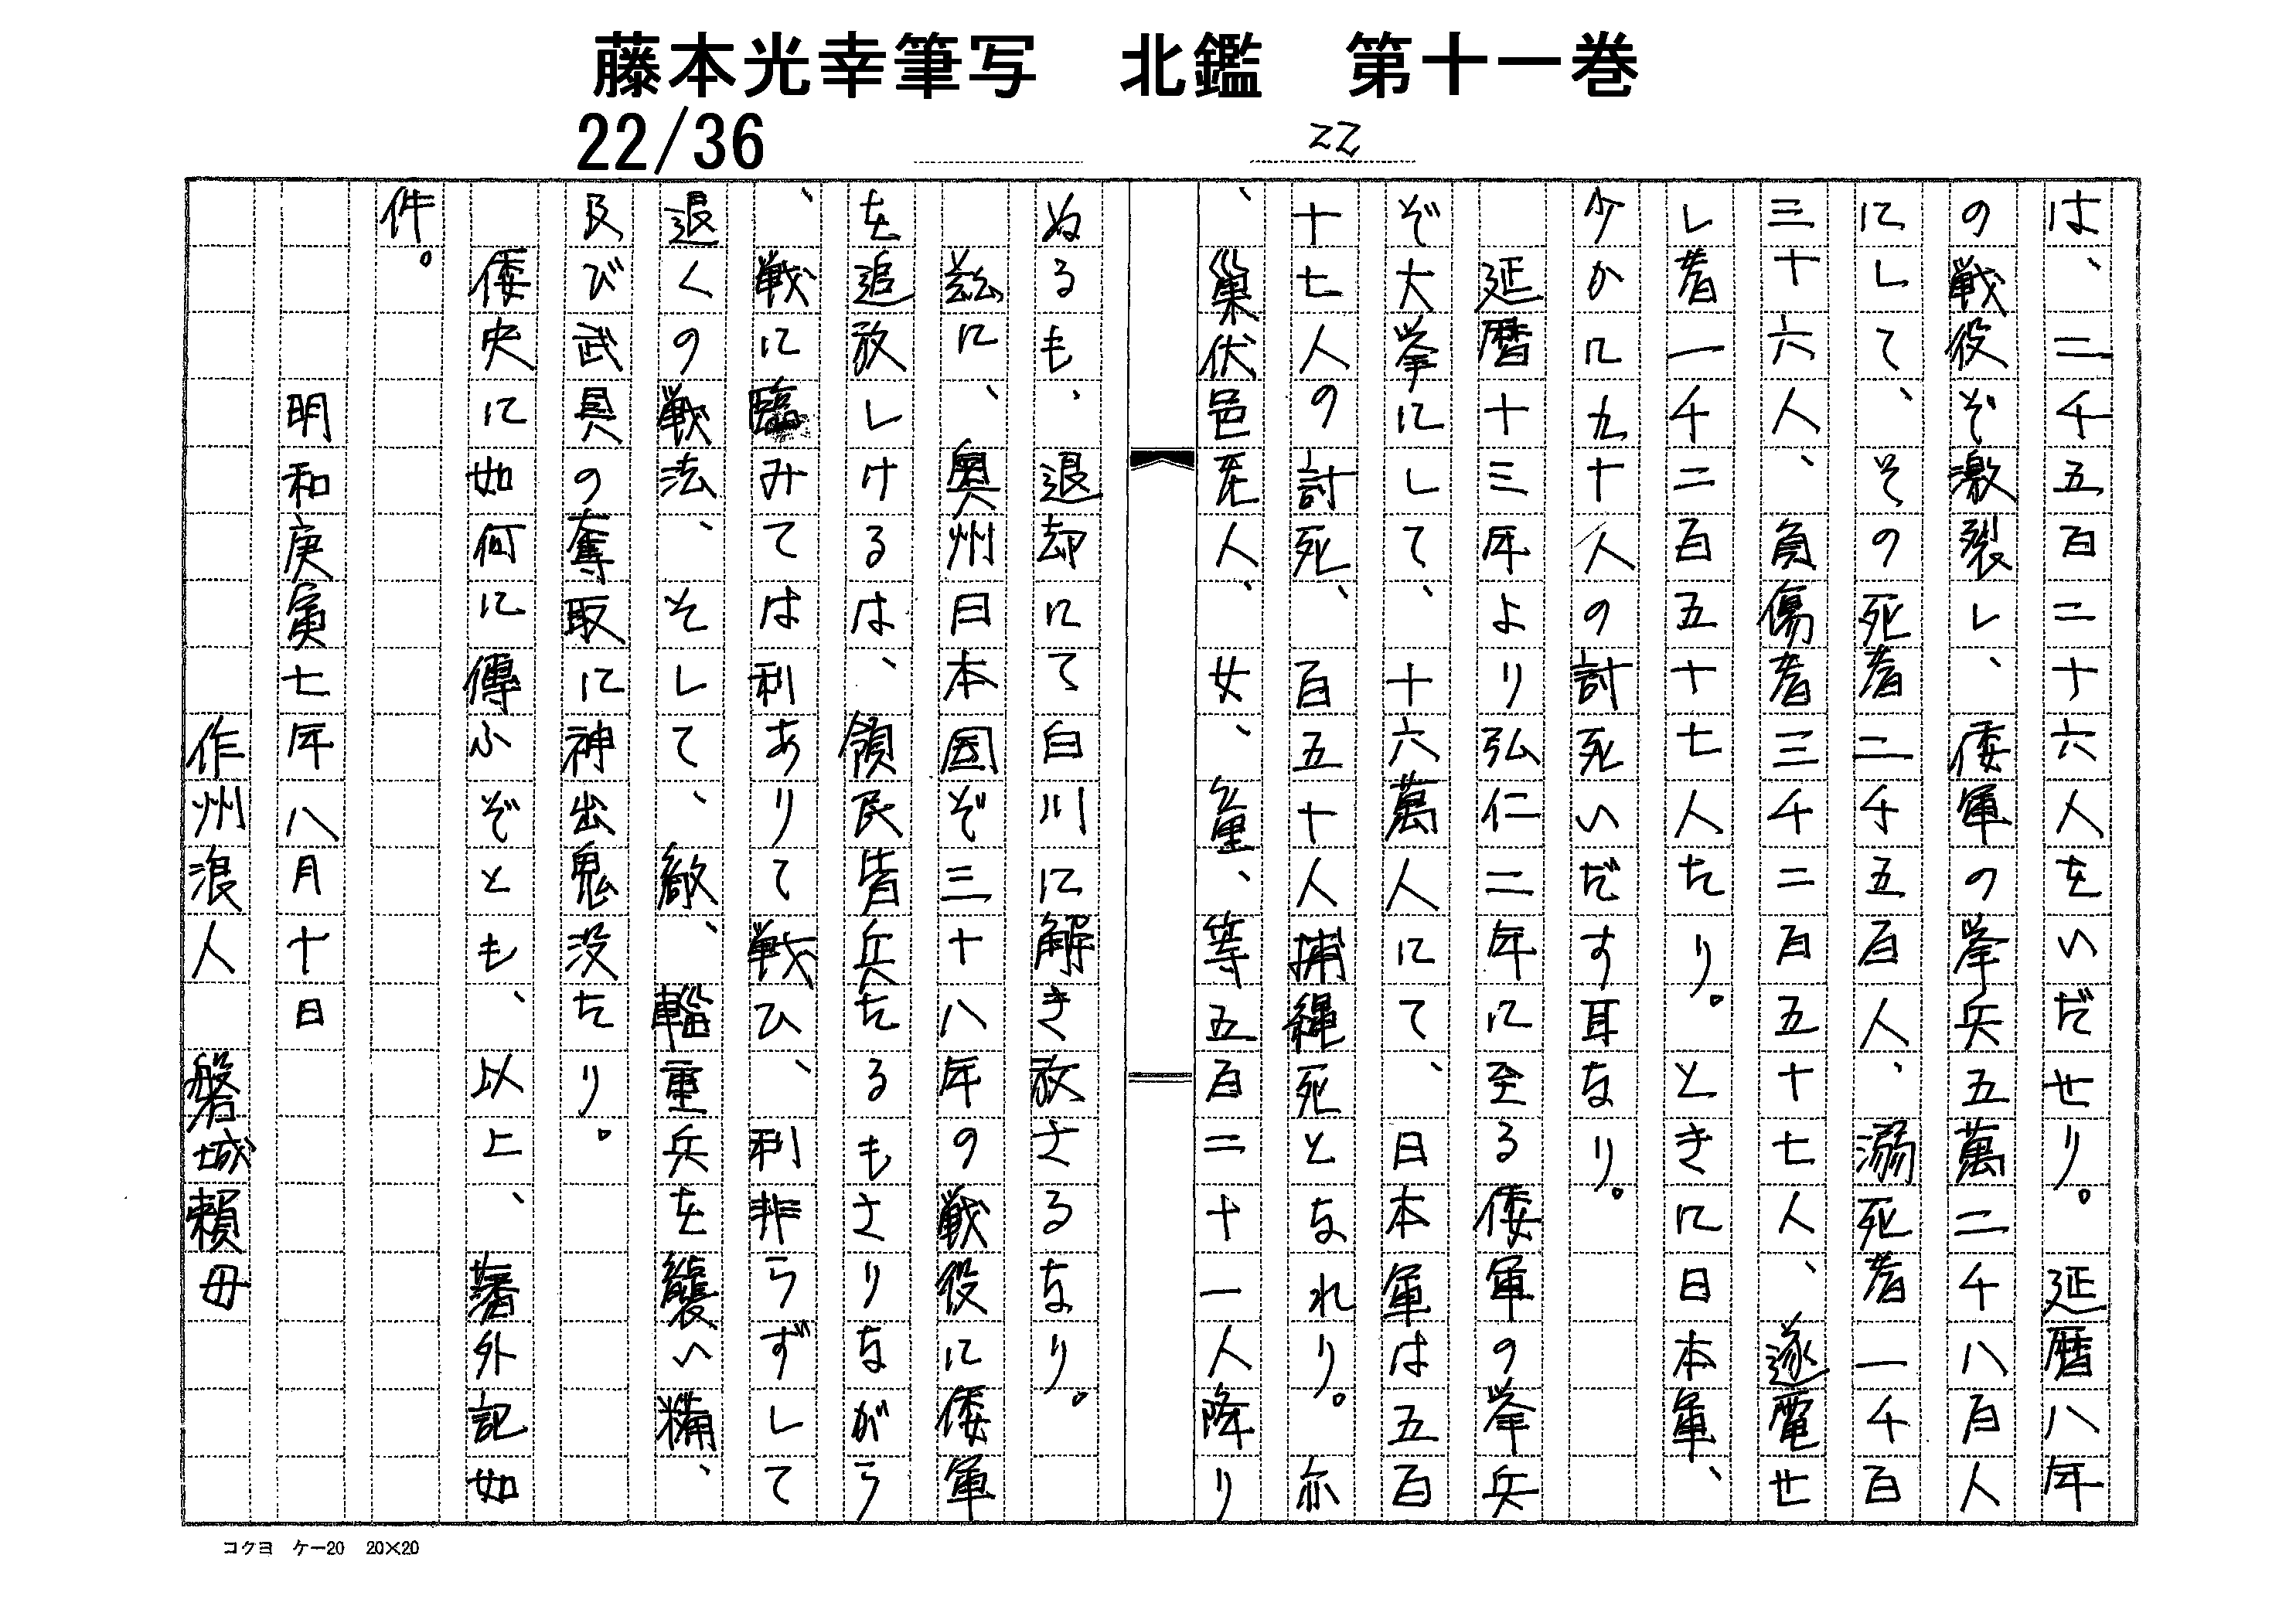 藤本光幸筆写　北鑑　第十一巻
22/36
22
は、二千五百二十六人をいだせり。延暦八年
の戦役ぞ激裂し、倭軍の挙兵五萬二千八百人
にして、その死者二千五百人、溺死者一千百
三十六人、負傷者三千二百五十七人、遂電せ
し者一千二百五十七人たり。ときに日本軍、
少かに九十人の討死いだす耳なり。
延暦十三年より弘仁二年に至る倭軍の挙兵
ぞ大挙にして、十六萬人にて、日本軍は五百
十七人の討死、百五十人捕縄死となれり。亦
、巣伏邑死人、女、童、等五百二十一人降り
ぬるも、退却にて白川に解き放さるなり。
茲に、奥州日本国ぞ三十八年の戦役に倭軍
を追放しけるは、領民皆兵たるもさりながら
、戦に臨みては利ありて戦ひ、利非らずして
退くの戦法、そして、敵、輜重兵を襲い糒、
及び武具の奪取に神出鬼没たり。
倭史に如何に傳ふぞとも、以上、藩外記如
件。
明和庚寅七年八月十日
作州浪人　磐城頼母
コクヨ　ケー20　20×20